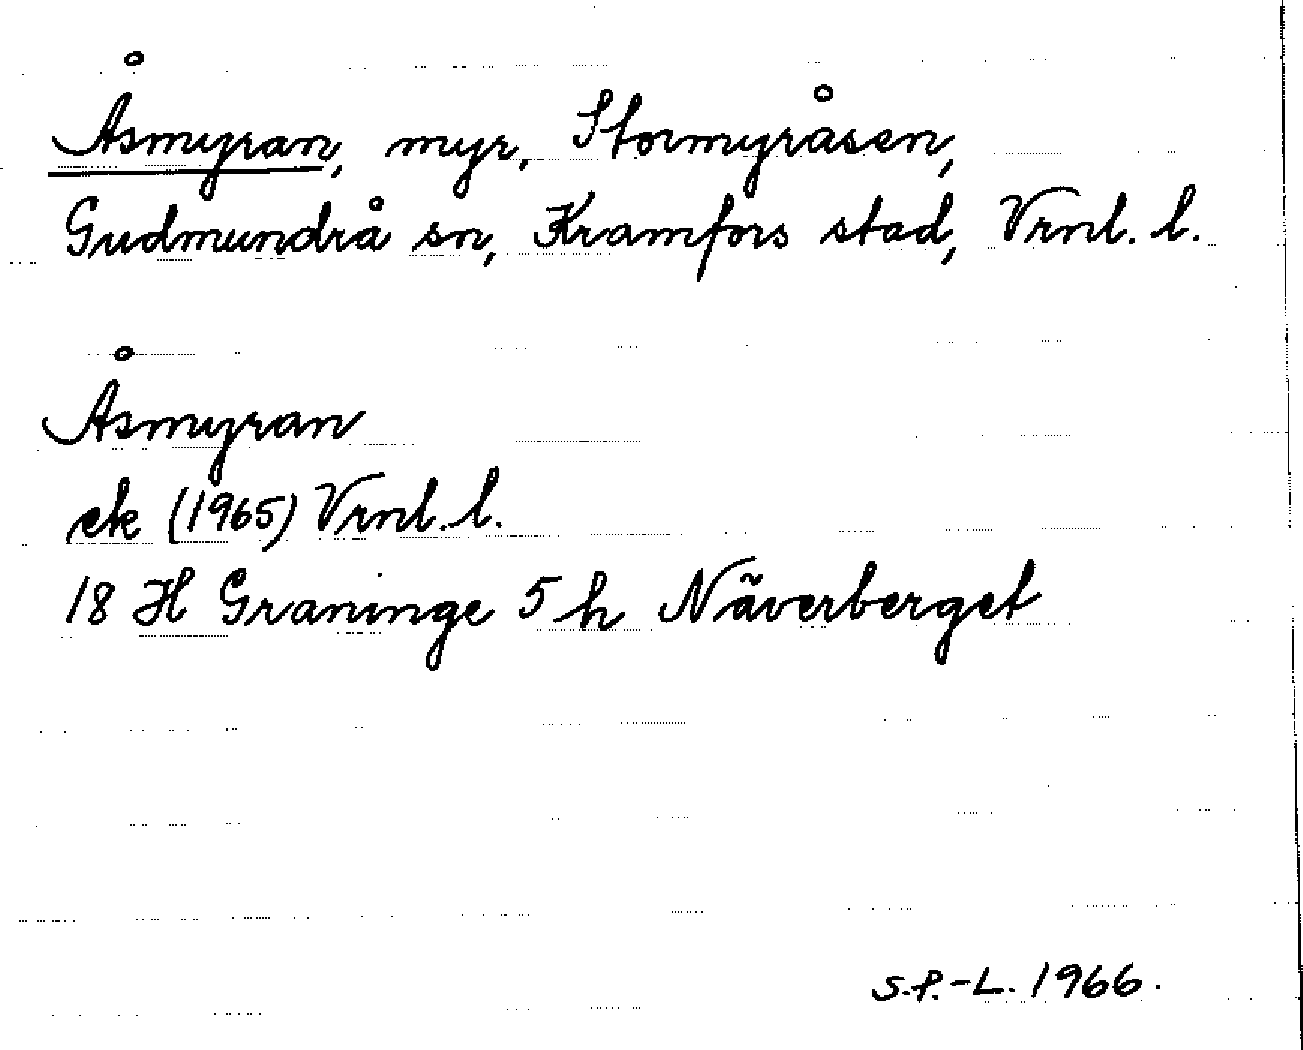 Åsmyran, myr, Stormyråsen,
Gudmundrå sn, Kramfors stad, Vrnl. l.
Åsmyran
ek (1965) Vrnl. l.
18 H Graninge 5 h Näverberget
S.f.-L. 1966.